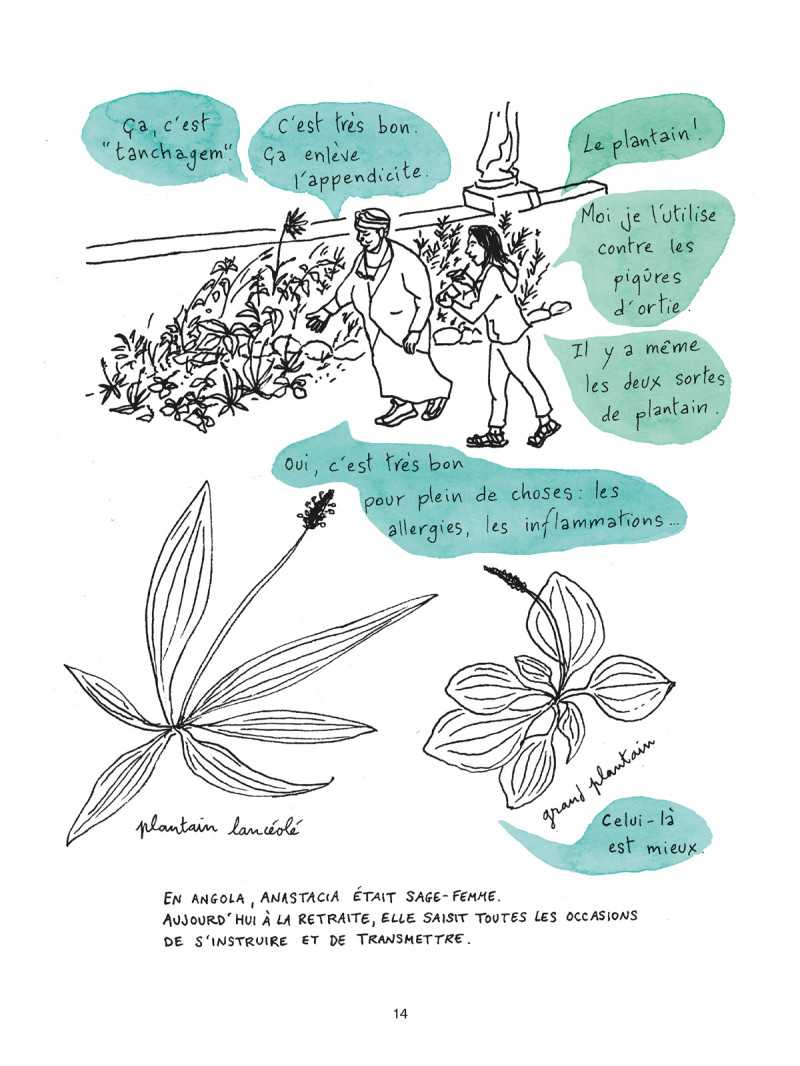 Ça, c'est
"tanchagem".
C'est très bon.
Ça enlève
l'appendicite.
Le plantain!
Moi je l'utilise
contre les
piqûres
d'ortie.
Il y a même
les deux sortes
de plantain.
Oui, c'est très bon
pour plein de choses: les
allergies, les inflammations...
plantain lancéolé
grand plantain
Celui-là
est mieux.
EN ANGOLA, ANASTACIA ÉTAIT SAGE-FEMME.
AUJOURD'HUI À LA RETRAITE, ELLE SAISIT TOUTES LES OCCASIONS
DE S'INSTRUIRE ET DE TRANSMETTRE.
14